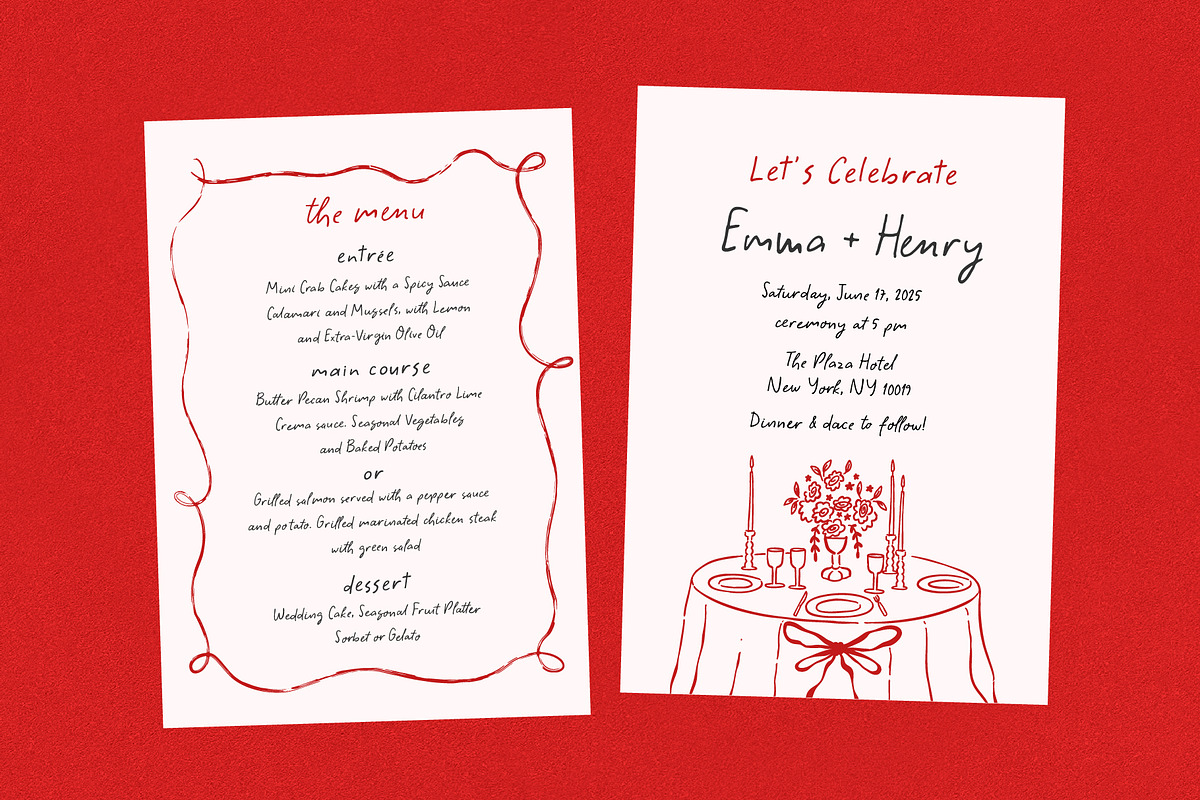 the menu
entrée
Mini Crab Cakes with a Spicy Sauce
Calamari and Mussels, with Lemon
and Extra-Virgin Olive Oil
main course
Butter Pecan Shrimp with Cilantro Lime
Crema sauce. Seasonal Vegetables
and Baked Potatoes
or
Grilled salmon served with a pepper sauce
and potato. Grilled marinated chicken steak
with green salad
dessert
Wedding Cake, Seasonal Fruit Platter
Sorbet or Gelato
Let's Celebrate
Emma + Henry
Saturday, June 17, 2025
ceremony at 5 pm
The Plaza Hotel
New York, NY 10019
Dinner & dace to follow!